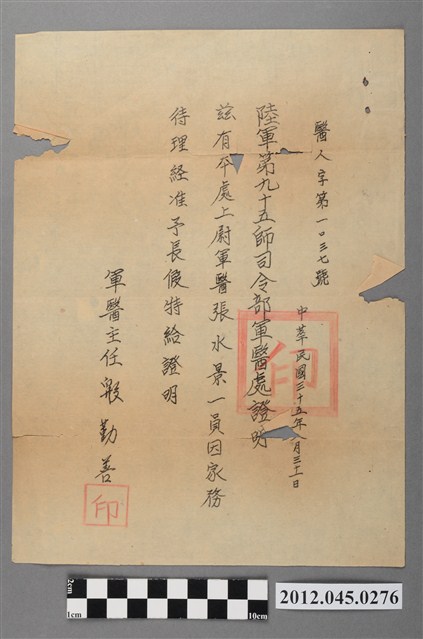 醫人字第一〇三七號
中華民國三十五年八月三十一日
陸軍第九十五師司令部軍醫處證明
印
茲有本處上尉軍醫張水景一員因家務
待理經准予長假特給證明
軍醫主任殷勤善
印
2cm
1cm
10cm
2012.045.0276